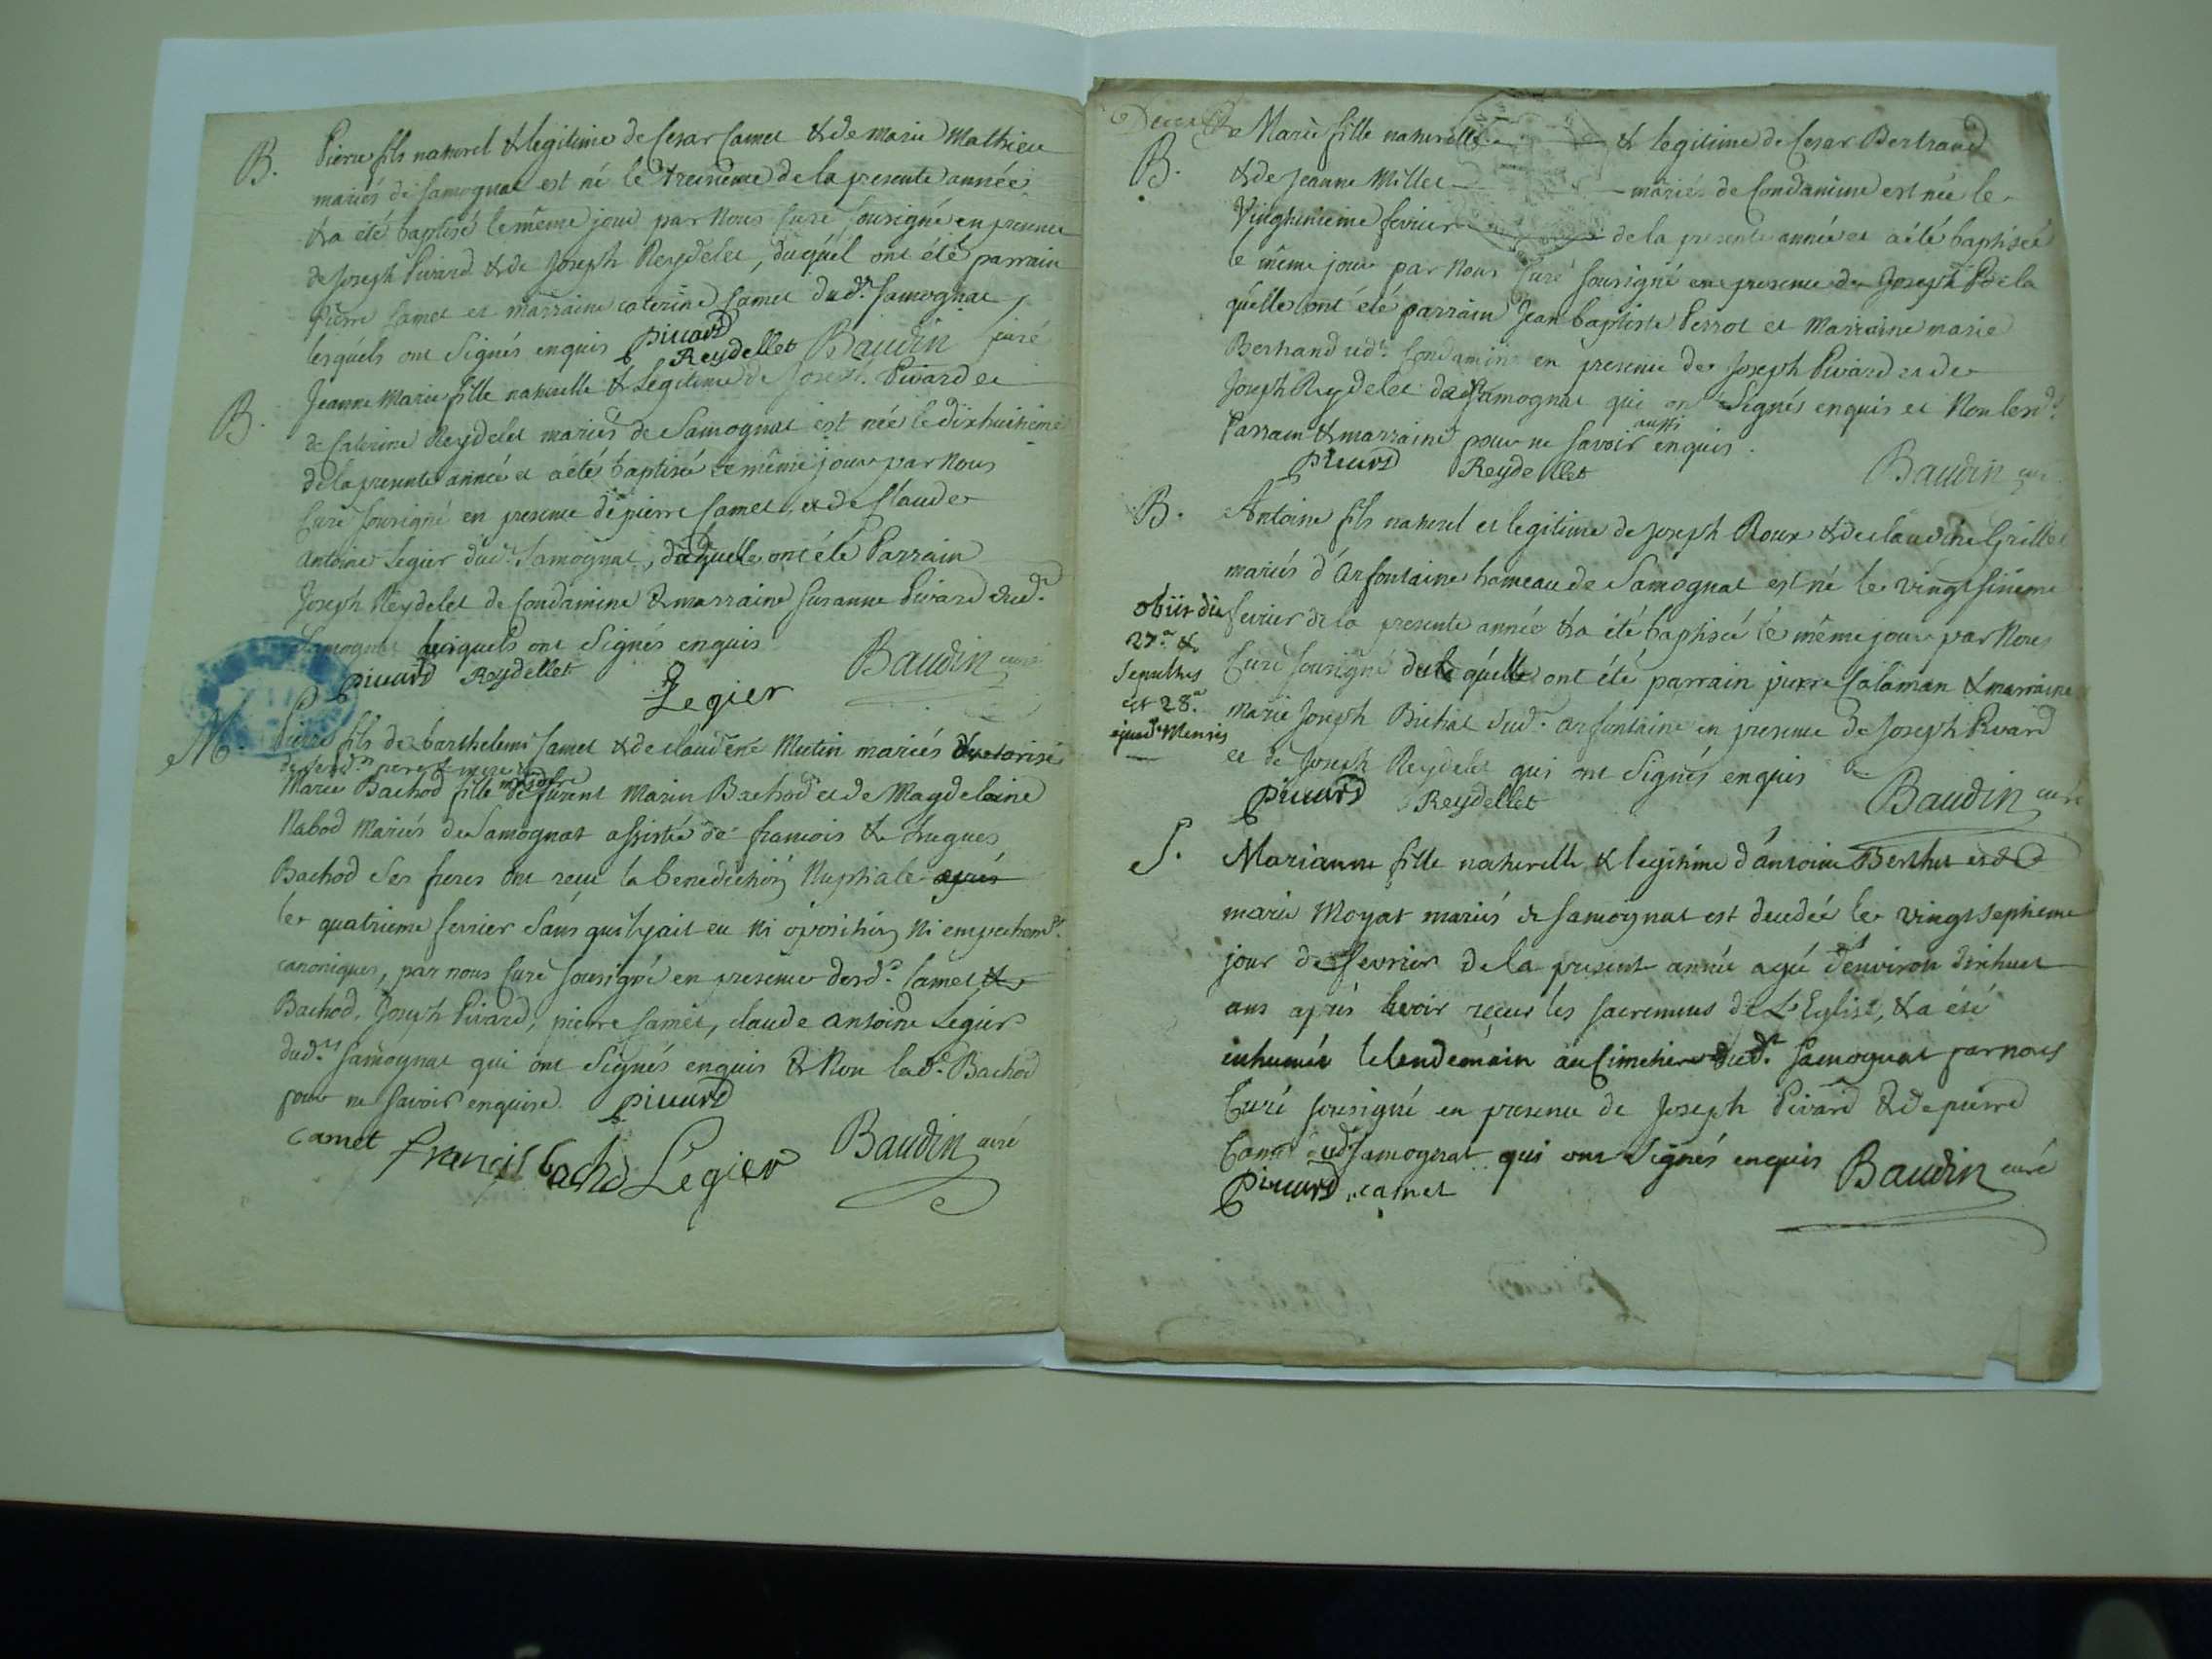 B. Pierre fils naturel & legitime de Cesar Camet & de marie Mathieu
mariés de Samognat est né le treizieme de la presente année
& a été baptisé le même jour par Nous Curé sousigné en presence
de Joseph Pivard & de Joseph Reydelet, duquel ont été parrain
pierre Camet et marraine caterine Camet dud.t Samognat
lesquels ont Signés enquis Pivard
Reydellet Baudin curé
B. Jeanne Marie fille naturelle & Legitime de Joseph Pivard et
de Caterine Reydelet mariés de Samognat est née le dixhuitieme
de la presente année et a été baptisé le même jour par Nous
Curé sousigné en presence de pierre Camet, et de Claude
antoine Legier dud.t Samognat, de laquelle ont été Parrain
Joseph Reydelet de Condamine & marraine Susanne Pivard dud.t
Samognat lesquels ont Signés enquis
Pivard Reydellet Legier Baudin curé
M. Pierre fils de barthelemi Camet & de claudene Mutin mariés
de sesd.s pere & mere
Marie Bachod fille majeure de furent Marin Bachod et de Magdelaine
Nabod Mariés de Samognat assistée de francois & hugues
Bachod Ses freres ont recu la benediction Nuptiale après
le quatrieme fevrier Sans quil yait eu Ni oposition Ni empechem.t
canoniques, par nous Curé sousigné en presence desd.s Camet &
Bachod, Joseph Pivard, pierre Camet, claude antoine Legier
dud.t Samognat qui ont Signés enquis & Non lad.e Bachod
pour ne savoir enquise. Pivard
camet francois bachod Legier Baudin curé
Marie fille naturelle & legitime de Cesar Bertrand
B. & de Jeanne Millet mariés de Condamine est née le
Vingtunieme fevrier de la presente année et a été baptisée
le même jour par Nous Curé sousigné en presence de Joseph P de la
quelle ont été parrain Jean baptiste Perrot et Marraine marie
Bertrand dud.t Condamine en presence de Joseph Pivard et de
Joseph Reydelet de Samognat qui ont Signés enquis et Non lesd.ts
Parrain & marraine pour ne savoir aussi enquis.
Pivard Reydellet Baudin curé
B. Antoine fils naturel et legitime de Joseph Roux & de claudine Grillet
mariés d'Arfontaine hameau de Samognat est né le vingtsixieme
fevrier de la presente année & a été baptisée le même jour par Nous
obiit die
27.a &
Sepultus
est 28.a
ejusd. Mensis
Curé sousigné duquel ont été parrain pierre Calaman & marraine
marie Joseph Bichat dud.t arfontaine en presence de Joseph Pivard
et de Joseph Reydelet qui ont Signés enquis
Pivard Reydellet Baudin curé
S. Marianne fille naturelle & legitime d'antoine Berthet et de
marie Moyat mariés de Samognat est decedée le vingt septieme
jour de fevrier de la presente année agée d'environ dixhuit
ans aprés avoir reçue les sacremens de L'Eglise, & a été
inhumée le lendemain au Cimetiere dud.t Samognat par nous
Curé sousigné en presence de Joseph Pivard & de pierre
Camet dud.t Samognat qui ont Signés enquis Baudin curé
Pivard camet